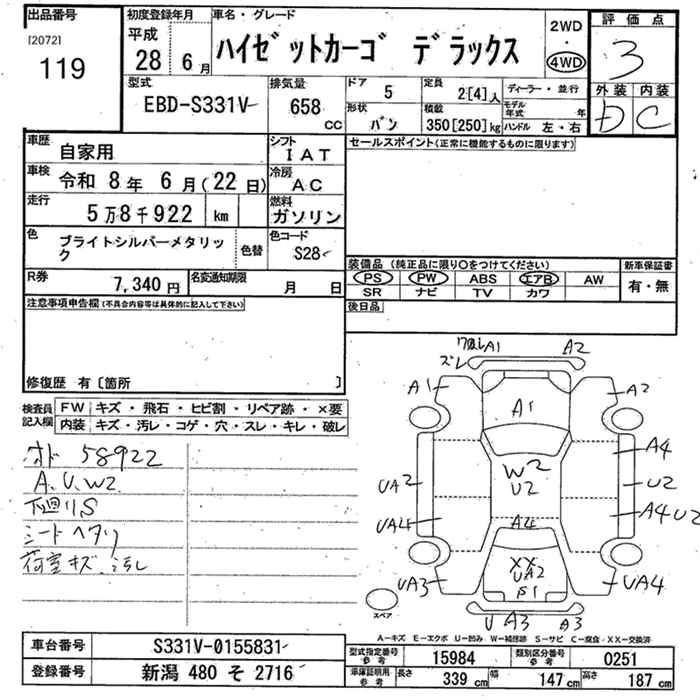 出品番号
[2072]
119
初度登録年月
平成
28 6月
車名・グレード
ハイゼットカーゴ デラックス
2WD
・
4WD
評価点
3
外装 内装
D C
型式
EBD-S331V
排気量
658
CC
ドア
5
定員
2[4]人
形状
バン
積載
350[250]kg
ディーラー・並行
モデル年式 年
ハンドル 左・右
車歴
自家用
シフト
IAT
車検
令和 8年 6月(22日)
冷房
AC
走行
5万8千922 km
燃料
ガソリン
色
ブライトシルバーメタリック
色替
色コード
S28
R券
7,340円
名変通知期限
月 日
セールスポイント(正常に機能するものに限ります)
装備品 (純正品に限り○をつけてください)
PS PW ABS エアB AW
SR ナビ TV カワ
新車保証書
有・無
後日品
注意事項申告欄(不具合内容等は具体的に記入して下さい)
修復歴 有〔箇所 〕
検査員記入欄
FW キズ・飛石・ヒビ割・リペア跡・×要
内装 キズ・汚レ・コゲ・穴・スレ・キレ・破レ
オド 58922
A.U.W2
下廻りS
シートヘタリ
荷室キズ、汚レ
ズレ A1 A2
A1 A1 A2
W2
U2
A4
UA2 U2
UA4 A4 A4U2
XX
UA2
S1
UA3 UA4
U A3 A3
スペア
A-キズ E-エクボ U-凹み W-補修跡 S-サビ C-腐食 XX-交換済
車台番号
S331V-0155831
登録番号
新潟 480 そ 2716
型式指定番号
参考
15984
類別区分番号
参考
0251
車庫証明用
参考
長さ 339 cm 幅 147 cm 高さ 187 cm